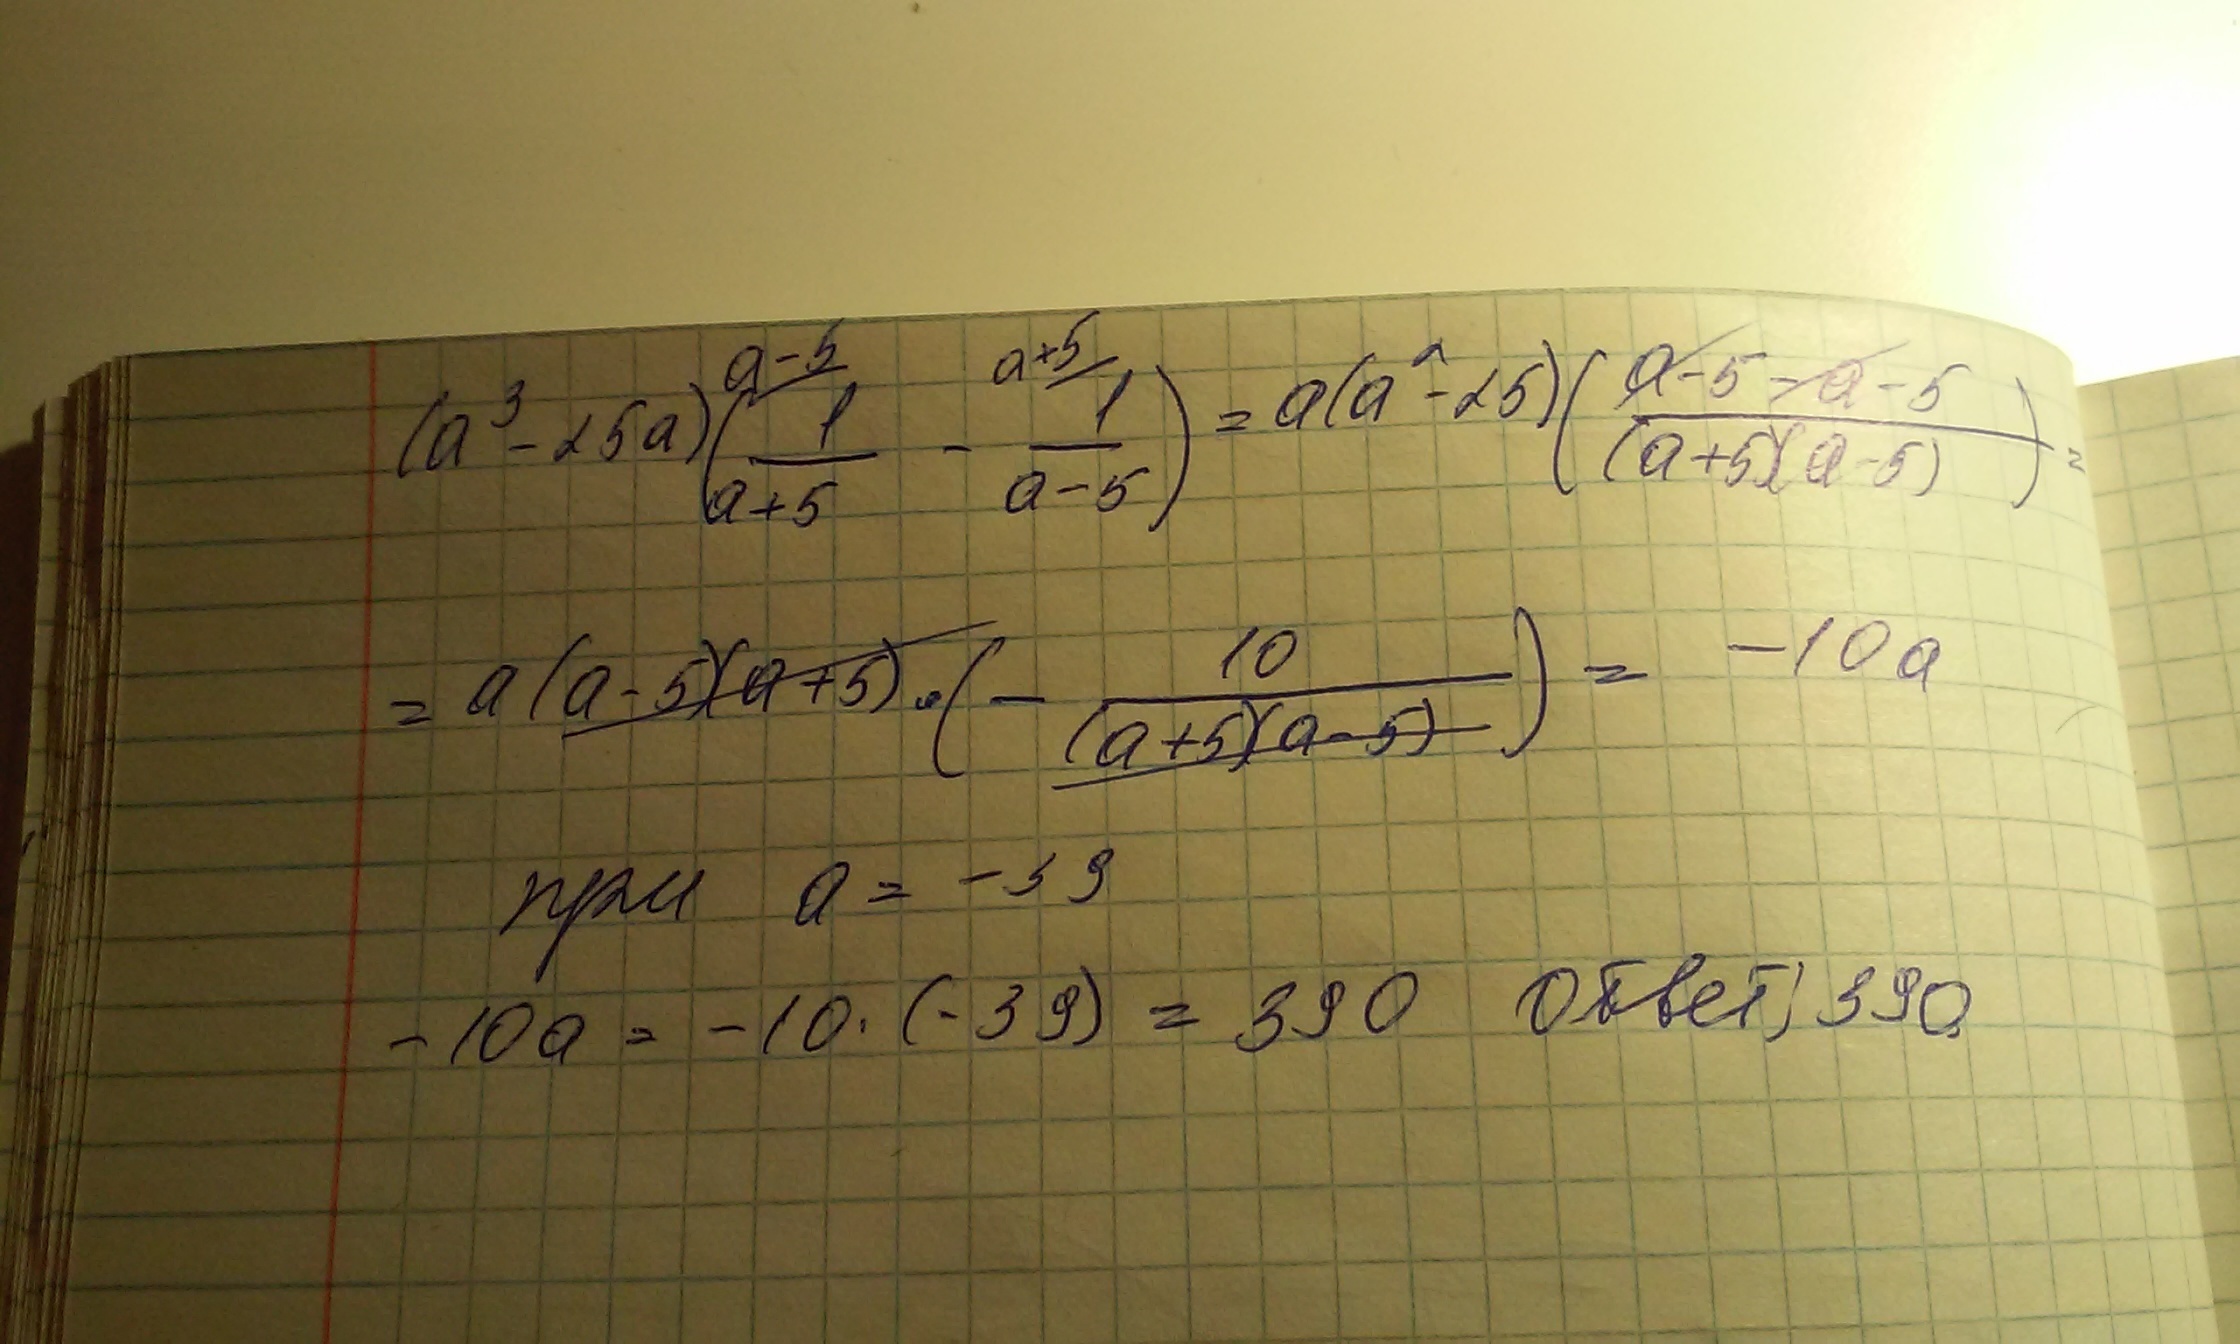 (a³ - 25a)(1/(a+5) ^(a-5) - 1/(a-5) ^(a+5)) = a(a² - 25)((a-5-a-5)/((a+5)(a-5))) =
= a(a-5)(a+5) · (- 10/((a+5)(a-5))) = -10a
при a = -39
-10a = -10 · (-39) = 390 Ответ; 390